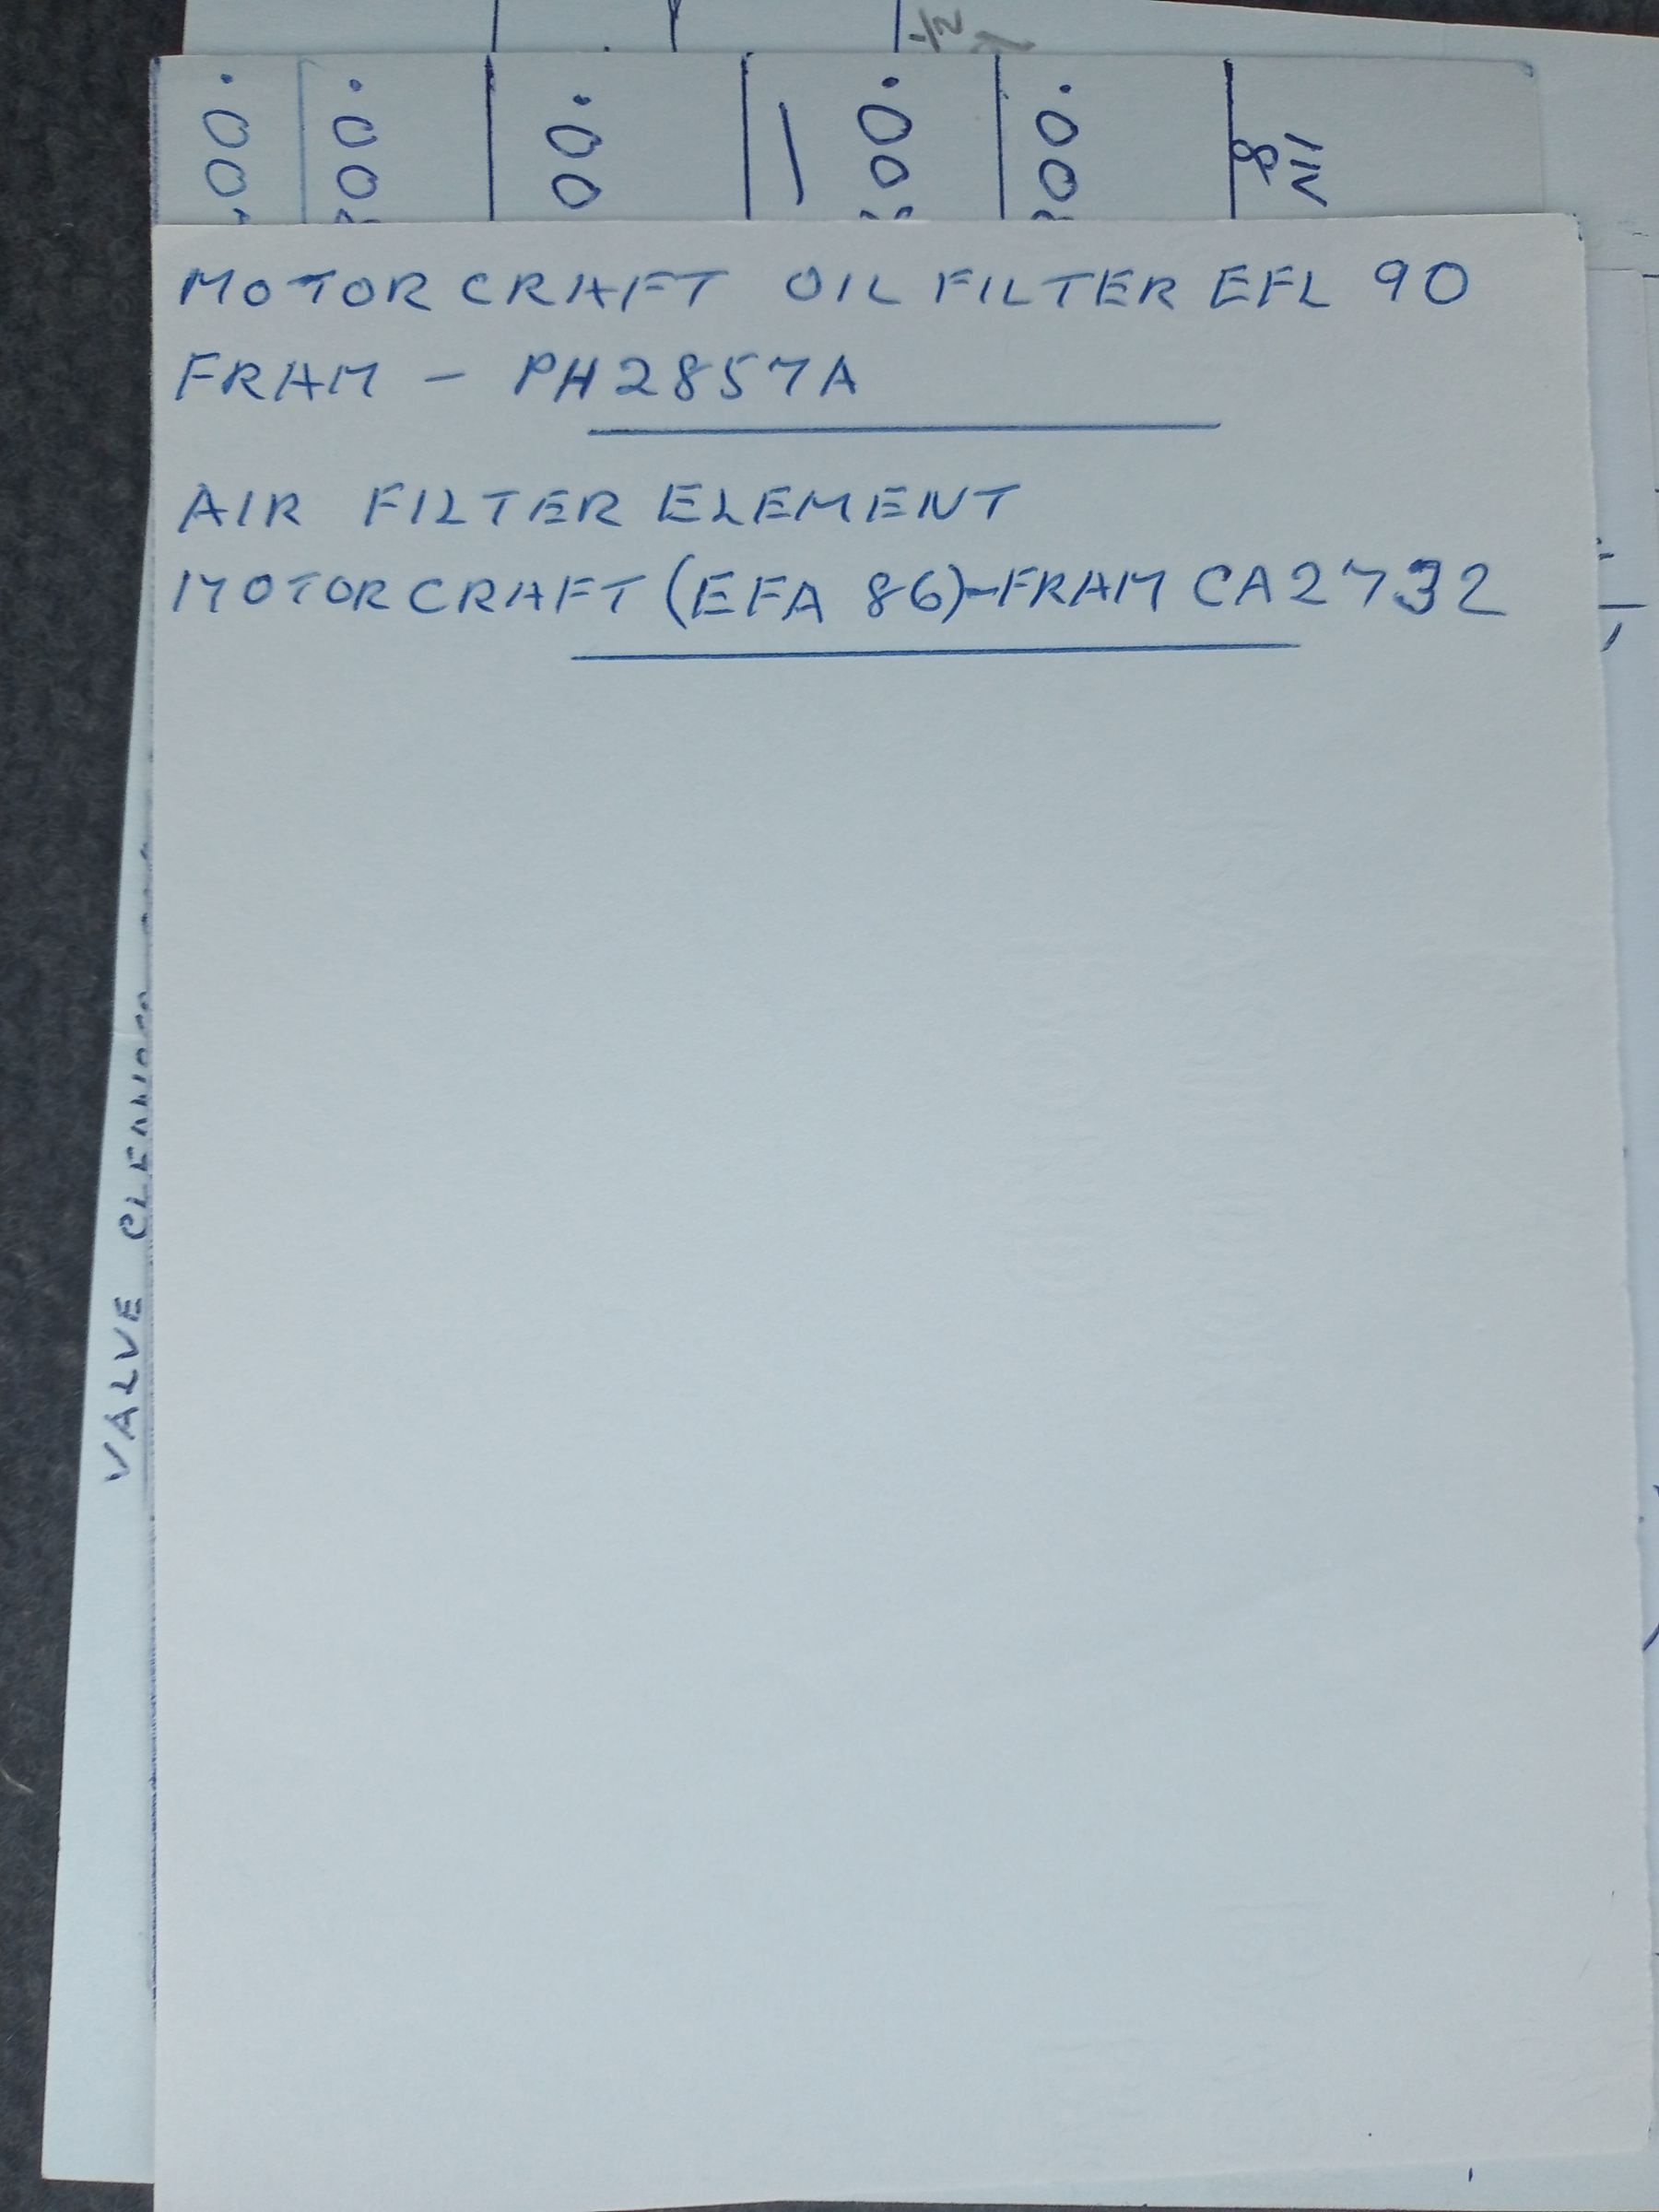 MOTORCRAFT OIL FILTER EFL 90
FRAM - PH2857A
AIR FILTER ELEMENT
MOTORCRAFT (EFA 86)-FRAM CA2732
VALVE